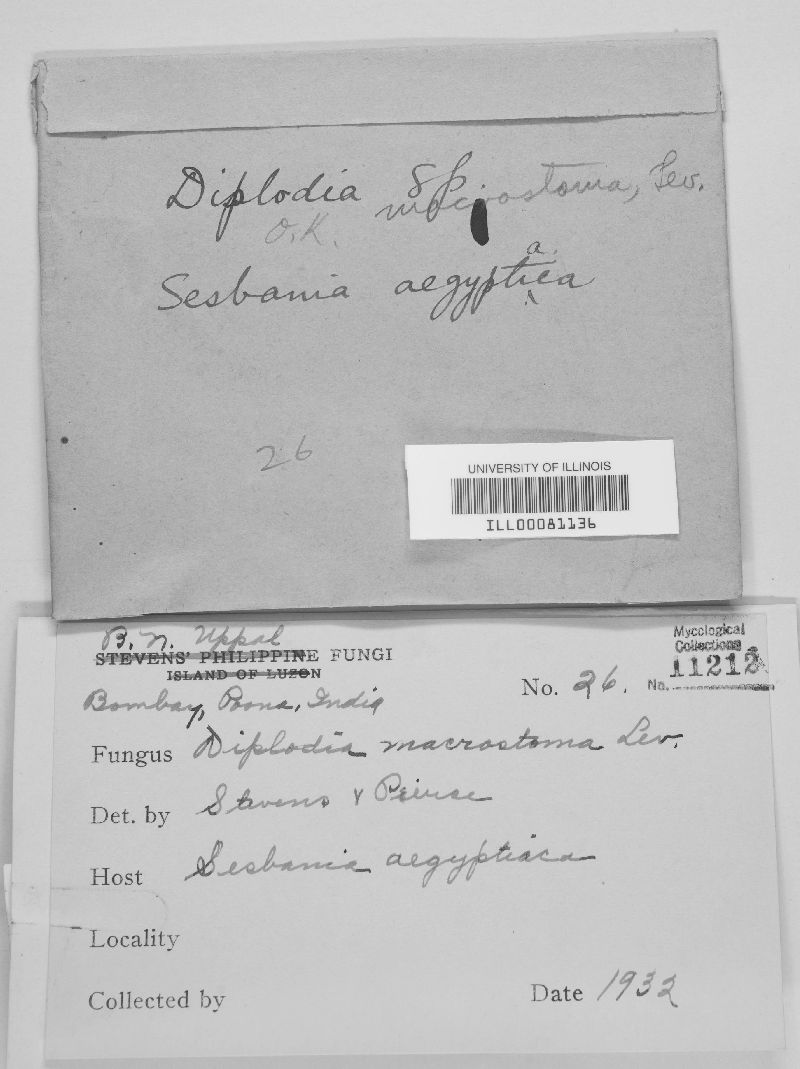 Diplodia sp
macrostoma, Lev.
O.K.
a.
Sesbania aegyptica
26
UNIVERSITY OF ILLINOIS
ILL00081136
B. N. Uppal
STEVENS' PHILIPPINE FUNGI
ISLAND OF LUZON
Bombay, Poona, India
No. 26.
Mycological
Collections
No. 11212
Fungus Diplodia macrostoma Lev.
Det. by Stevens & Peirse
Host Sesbania aegyptiaca
Locality
Collected by
Date 1932